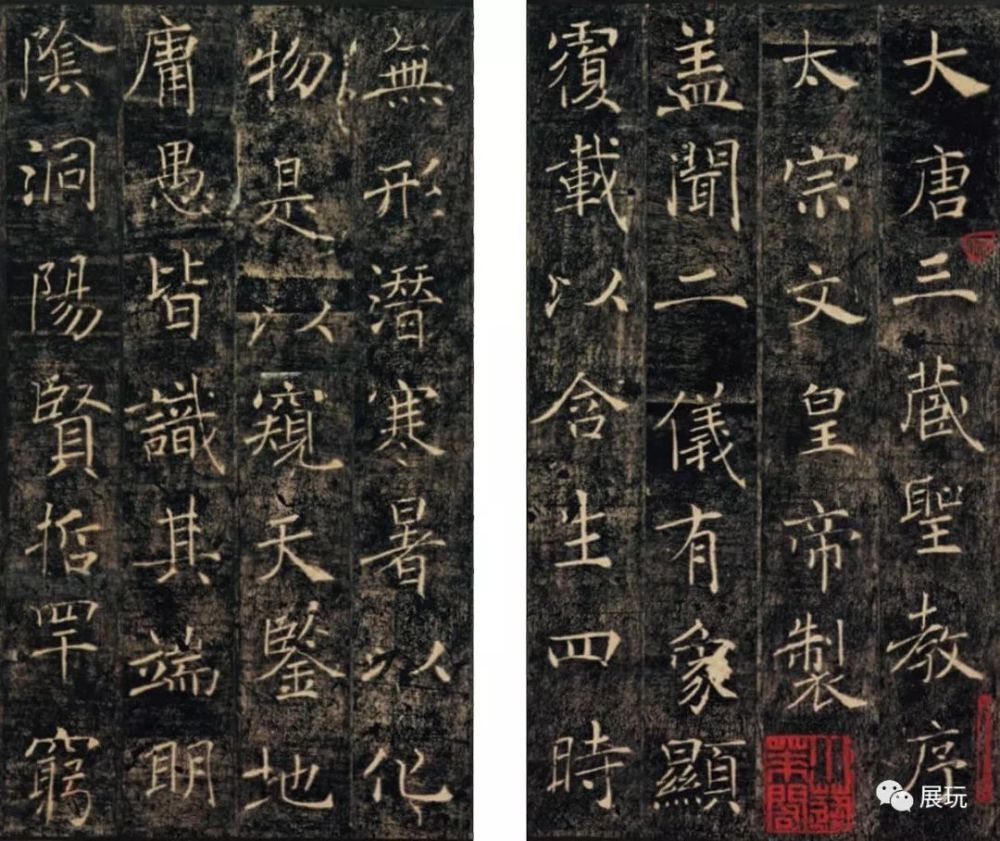 大唐三藏聖教序
太宗文皇帝製
盖聞二儀有象顯
覆載以含生四時
無形潛寒暑以化
物是以窺天鑒地
庸愚皆識其端明
陰洞陽賢哲罕窮
小蓬萊閣
展玩